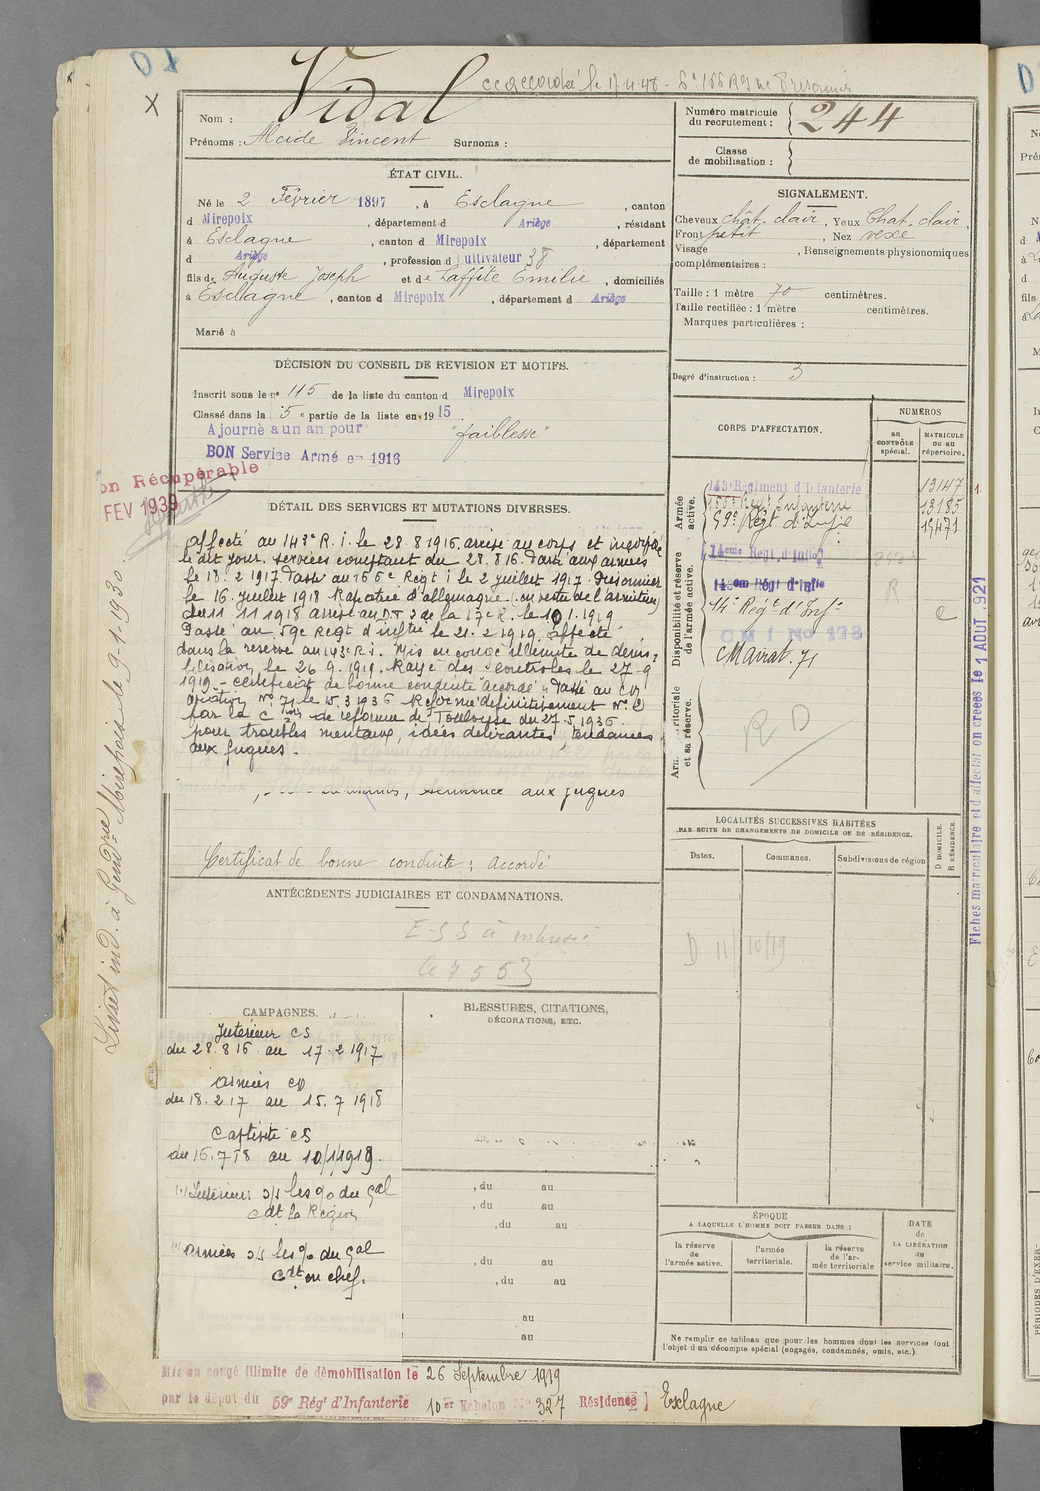 Vidal
Nom :
Prénoms : Alcide Vincent Surnoms :
Numéro matricule
du recrutement : 244
Classe
de mobilisation :
ÉTAT CIVIL.
Né le 2 Février 1897, à Esclagne, canton
d Mirepoix, département d Ariège, résidant
à Esclagne, canton d Mirepoix, département
d Ariège, profession d Cultivateur 38
fils de Auguste Joseph et de Laffite Emilie, domiciliés
à Esclagne, canton d Mirepoix, département d Ariège
Marié à
SIGNALEMENT.
Cheveux chât. clair, Yeux Chat. clair,
Front petit, Nez vexe
Visage , Renseignements physionomiques
complémentaires :
Taille : 1 mètre 70 centimètres.
Taille rectifiée : 1 mètre centimètres.
Marques particulières :
Degré d'instruction : 3
DÉCISION DU CONSEIL DE REVISION ET MOTIFS.
Inscrit sous le no 115 de la liste du canton d Mirepoix
Classé dans la 5e partie de la liste en 1915.
Ajourné a un an pour "faiblesse"
BON Service Armé en 1916
on Récupérable
FEV 1939
DÉTAIL DES SERVICES ET MUTATIONS DIVERSES.
affecté au 143e R. i. le 28.8.1916. arrivé au corps et incorporé
le dit jour. services comptant du 28.8.16. Passé aux armées
le 18.2.1917. Passé au 166e Régt i le 2 juillet 1917. Prisonnier
le 16 juillet 1918 Rapatrié d'allemagne (en vertu de l'armistice)
du 11 11 1918 arrivé au DT de la 17e R. le 10 1.1919
Passé au 59e Regt d'inftie le 21.2.1919. affecté
dans la réserve au 143e R i. Mis en congé illimité de démo-
bilisation le 26.9.1919. Rayé des controles le 27.9
1919. - certificat de bonne conduite "accordé". Passé au CM
aviation No 71 le 15.3.1936 Réformé définitivement No 2
par la Cion de réforme de Toulouse du 27.5.1936.
pour troubles mentaux, idées délirantes, tendances
aux fugues.
aux fugues
Certificat de bonne conduite : accordé
ANTÉCÉDENTS JUDICIAIRES ET CONDAMNATIONS.
CORPS D'AFFECTATION.
NUMÉROS
AU CONTRÔLE spécial.
MATRICULE OU AU répertoire.
Armée active.
143e Régiment d'Infanterie 13147
166e Régt Infanterie 13185
59e Régt d'Infie 19471
Disponibilité et réserve de l'armée active.
14eme Regt. d'infie
14em Régt d'infie R
14e Régt d'Infie
C M I No 173
C Mairat. 71
Armée territoriale et sa réserve.
R D
LOCALITÉS SUCCESSIVES HABITÉES
PAR SUITE DE CHANGEMENTS DE DOMICILE OU DE RÉSIDENCE.
Dates. Communes. Subdivisions de région
D DOMICILE.
R RÉSIDENCE.
D 11/10/19
CAMPAGNES.
Intérieur CS
du 28.8 16 au 17.2 1917
armées CD
du 18.2 17 au 15.7 1918
Captivité CS
du 16.7 18 au 10/1/1919.
Intérieur s/s les o/o du Gal
Cdt la Région
armées s/s les o/o du Gal
Cdt en chef.
BLESSURES, CITATIONS,
DÉCORATIONS, ETC.
, du au
, du au
, du au
, du au
, du au
au
au
ÉPOQUE
A LAQUELLE L'HOMME DOIT PASSER DANS :
la réserve de l'armée active.
l'armée territoriale.
la réserve de l'armée territoriale
DATE de LA LIBÉRATION du service militaire.
Ne remplir ce tableau que pour les hommes dont les services font
l'objet d'un décompte spécial (engagés, condamnés, omis, etc.).
Mis en congé illimité de démobilisation le 26 Septembre 1919
par le dépôt du 59e Régt d'Infanterie 10er Echelon No 327 Résidence Esclagne
Livret ind. à Gendrie Mirepoix le 9-1-1930.
1 AOUT 1921